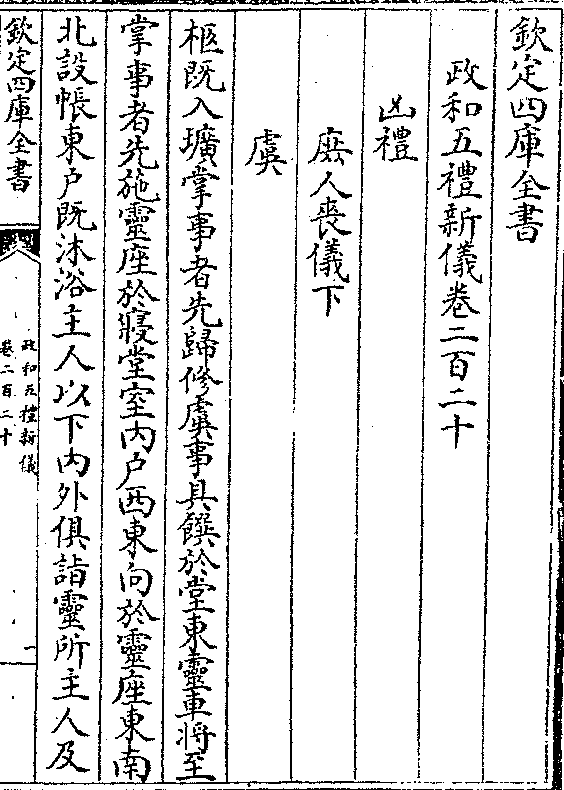 欽定四庫全書
政和五禮新儀卷二百二十
凶禮
庶人喪儀下
虞
柩既入壙掌事者先歸修虞事具饌於堂東靈車將至
掌事者先施靈座於寢堂室内户西東向於靈座東南
北設帳東户既沐浴主人以下内外俱詣靈所主人及
欽定四庫全書
政和五禮新儀
卷二百二十
一